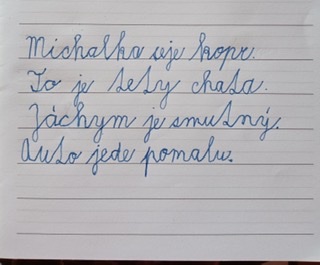 Michalka seje kopr.
To je tety chata.
Jáchym je smutný.
Auto jede pomalu.